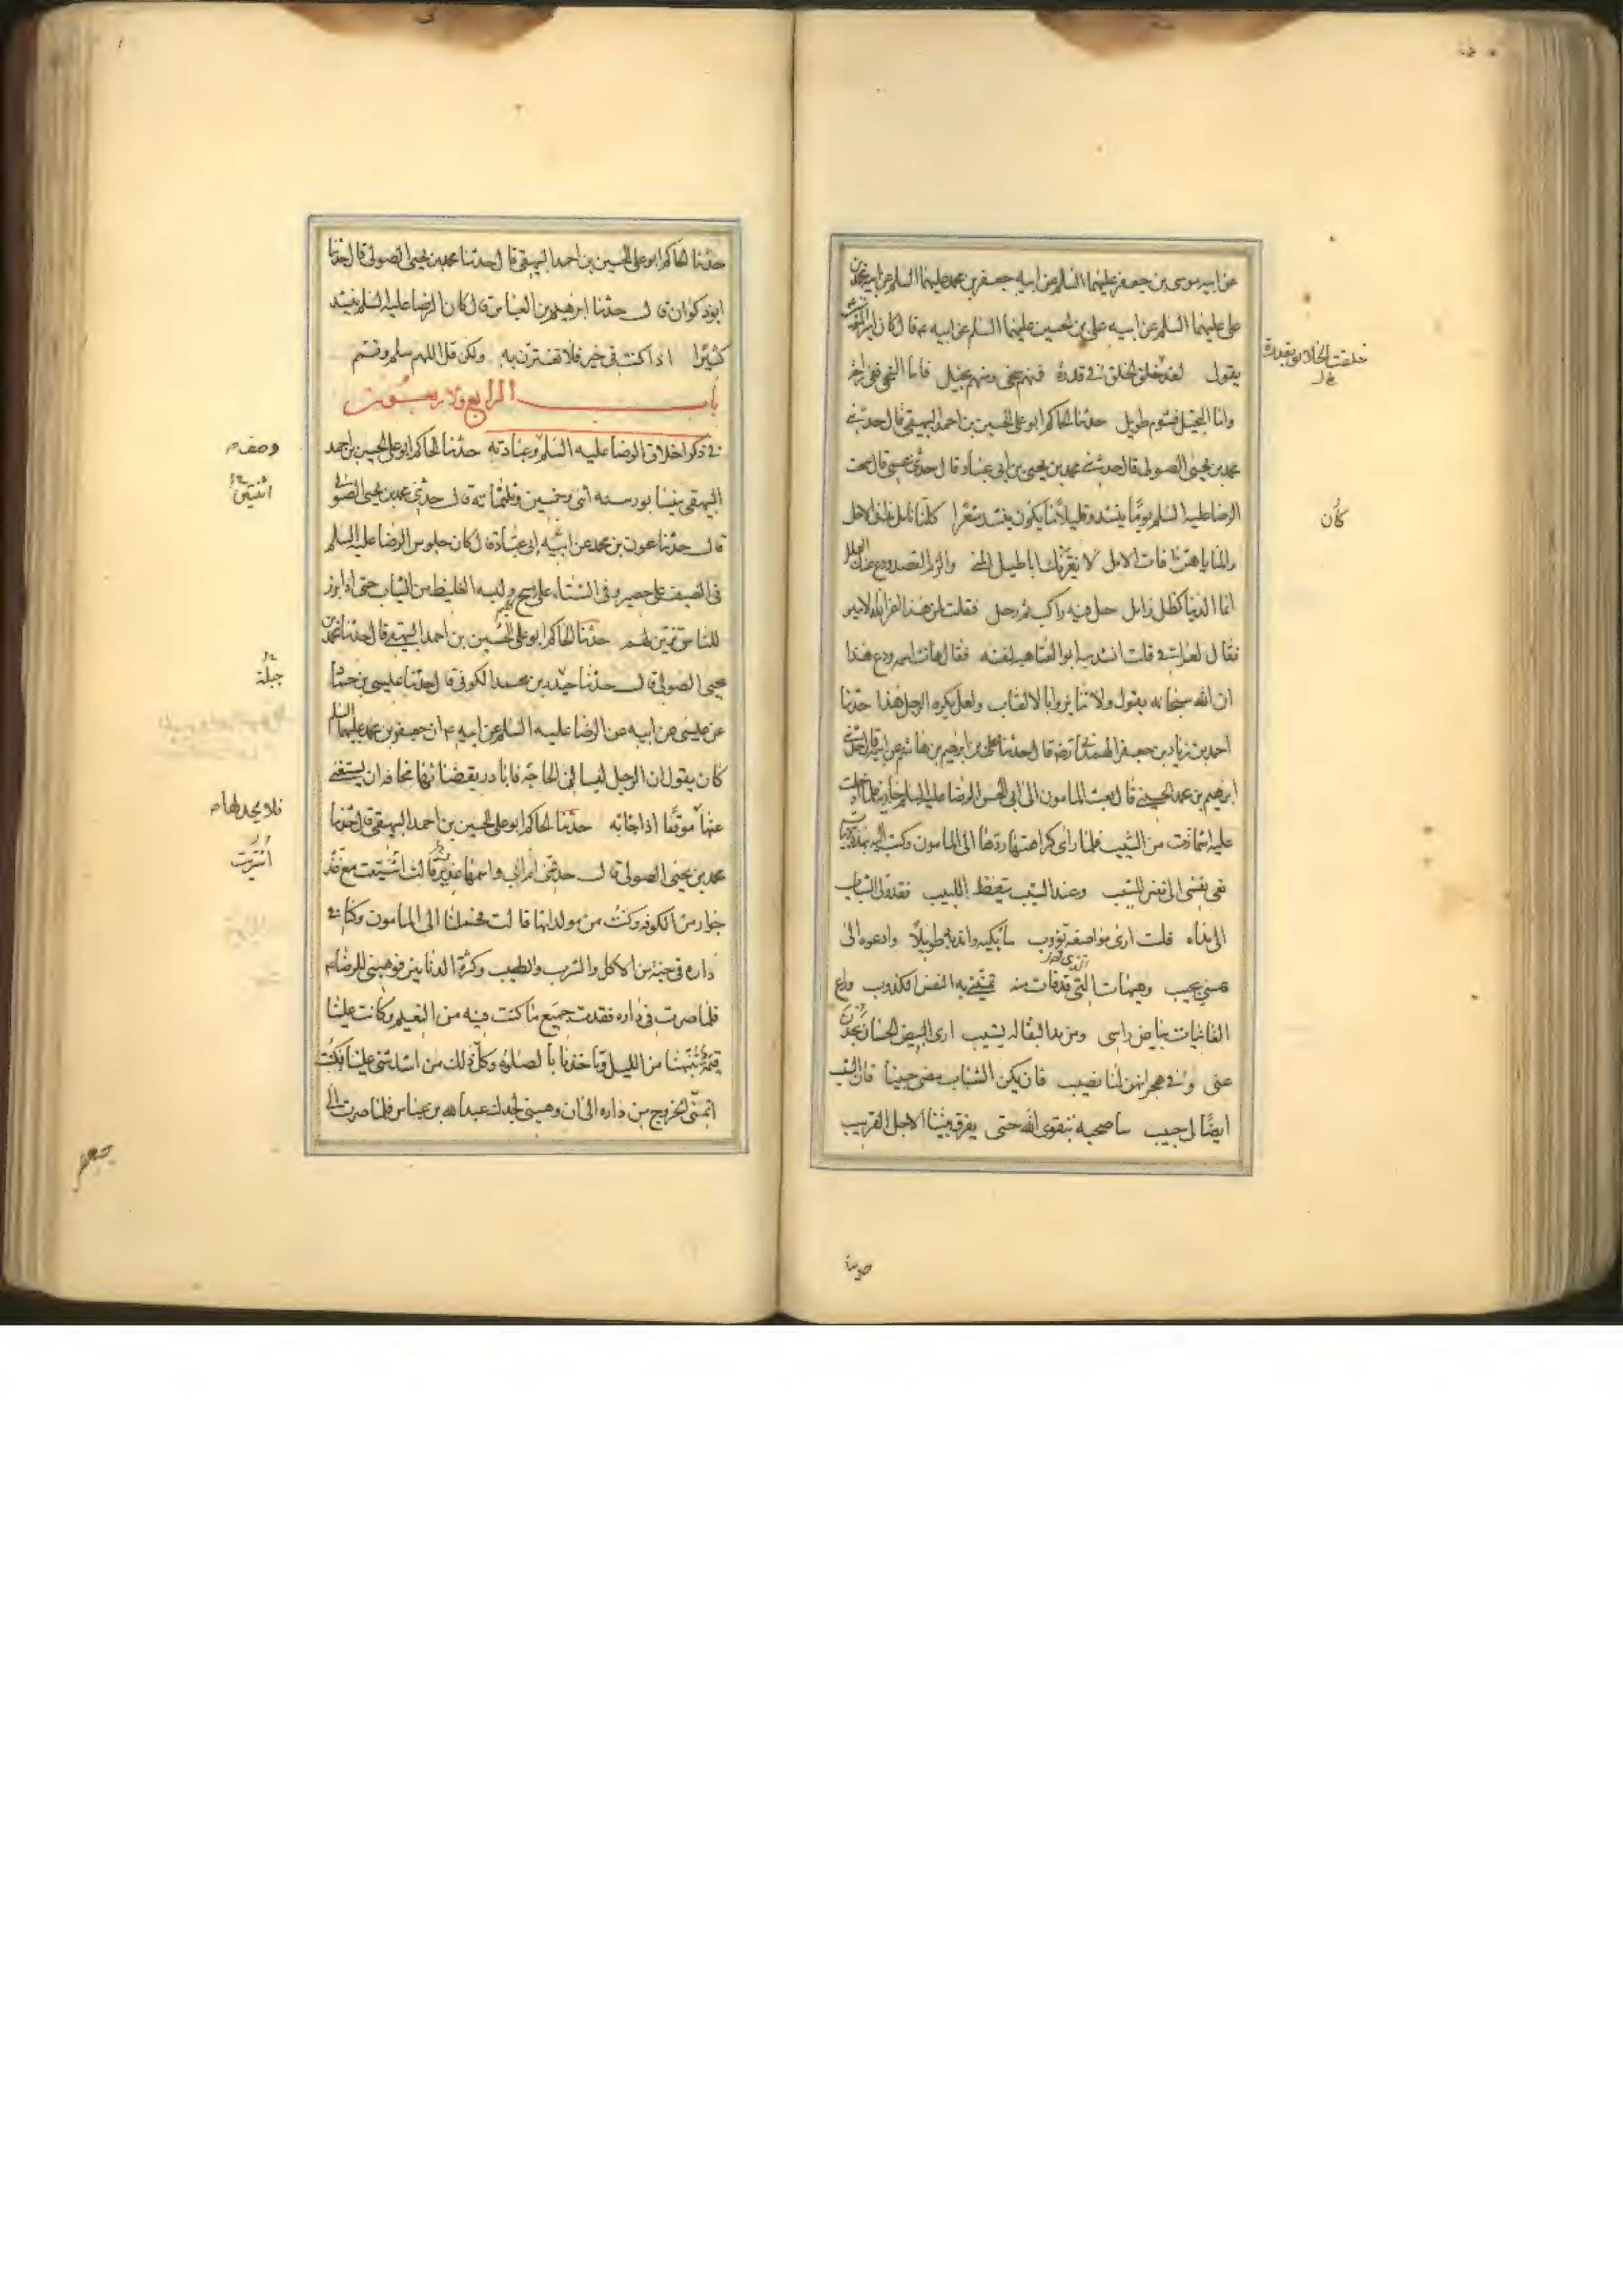 عن ابيه موسى بن جعفر عليهما السلم عن ابيه جعفر بن محمد عليهما السلم عن ابيه محمد بن
على عليهما السلم عن ابيه على بن الحسين عليهما السلم عن ابيه ع قال كان امير المؤمنين
يقول لقد خلق الخلق فى قدرة فمنهم سخى ومنهم بخيل فاما السخى ففى راحة
واما البخيل فشوم طويل حدثنا الحاكم ابو على الحسين بن احمد البيهقى قال حدثنى
محمد بن يحيى الصولى قال حدثنى محمد بن يحيى بن ابى عباد قال حدثنى عمى قال سمعت
الرضا عليه السلم يوما ينشد وقليلا ما يكون ينشد شعرا كلنا نامل مدا فى الاجل
والمنايا هن افات الامل لا تغرنك اباطيل المنى والزم القصد ودع عنك العلل
انما الدنيا كظل زايل حل فيه راكب ثم رحل فقلت لمن هذا اعز الله الامير
فقال لعراقى قلت انشدنيه ابو العتاهية لنفسه فقال هات اسمه ودع هذا
ان الله سبحانه يقول ولا تنابزوا بالالقاب ولعل يكره الرجل هذا حدثنا
احمد بن زياد بن جعفر الهمدانى رضه قال حدثنا على بن ابرهيم بن هاشم عن ابيه قال حدثنى
ابرهيم بن محمد الحسنى قال بعث المامون الى ابى الحسن الرضا عليه السلم جارية فلما ادخلت
عليه اشمازت من الشيب فلما راى كراهتها ردها الى المامون وكتب اليه بهذه الابيات
نعى نفسى الى نفسى المشيب وعند الشيب يتعظ اللبيب فقد ولى الشباب
الى مداه فلست ارى مواضعه تؤوب سابكيه واندبه طويلا وادعوه الى
الذى قد
عسى يجيب وهيهات التى قد فات منه تمنينى به النفس الكذوب وراع
الغانيات بياض راسى ومن مد البقا له يشيب ارى البيض الحسان يحدن
عنى وفى هجرانهن لنا نصيب فان يكن الشباب مضى حبيبا فان الشيب
ايضا لى حبيب ساصحبه بتقوى الله حتى يفرق بيننا الاجل القريب
كان
حدثنا الحاكم ابو على الحسين بن احمد البيهقى قال حدثنا محمد بن يحيى الصولى قال حدثنا
ابو ذكوان قال حدثنا ابرهيم بن العباس قال كان الرضا عليه السلم ينشد
كثيرا اذا كنت فى خير فلا تغترر به ولكن قل اللهم سلم وتمم
باب الرابع والاربعون
فى ذكر اخلاق الرضا عليه السلم وعبادته حدثنا الحاكم ابو على الحسين بن احمد
البيهقى بنيسابور سنه اثنى وخمسين وثلثمائة قال حدثنى محمد بن يحيى الصولى
قال حدثنا عون بن محمد عن ابيه ابى عباد قال كان جلوس الرضا عليه السلم
فى الصيف على حصير وفى الشتاء على مسح ولبسه الغليظ من الثياب حتى اذا برز
للناس تزين لهم حدثنا الحاكم ابو على الحسين بن احمد البيهقى قال حدثنا محمد بن
يحيى الصولى قال حدثنا جبلة بن محمد الكوفى قال حدثنا عيسى بن حماد
بن عيسى عن ابيه عن الرضا عليه السلم عن ابيه ع ان جعفر بن محمد عليهما السلم
كان يقول ان الرجل ليسالنى الحاجة فابادر بقضائها مخافة ان يستغنى
عنها موقعا اذا جائته حدثنا الحاكم ابو على الحسين بن احمد البيهقى قال حدثنا
محمد بن يحيى الصولى قال حدثتنى ام ابى واسمها عذر قالت اشتيت مع عدة
جوار من الكوفه وكنت من مولداتها قالت فحملنا الى المامون وكنا فى
داره فى جنة من الاكل والشرب والطيب وكثرة الدنانير فوهبنى للرضا ع
فلما صرت فى داره فقدت جميع ما كنت فيه من النعيم وكانت علينا
قيمة تنبهنا من الليل وتاخذنا بالصلوة وكان ذلك من اشد شئ علينا فكنت
اتمنى الخروج من داره الى ان وهبنى لجدك عبد الله بن عباس فلما صرت الى
اثنتين
جبلة
فلا يجد لها
اشتريت